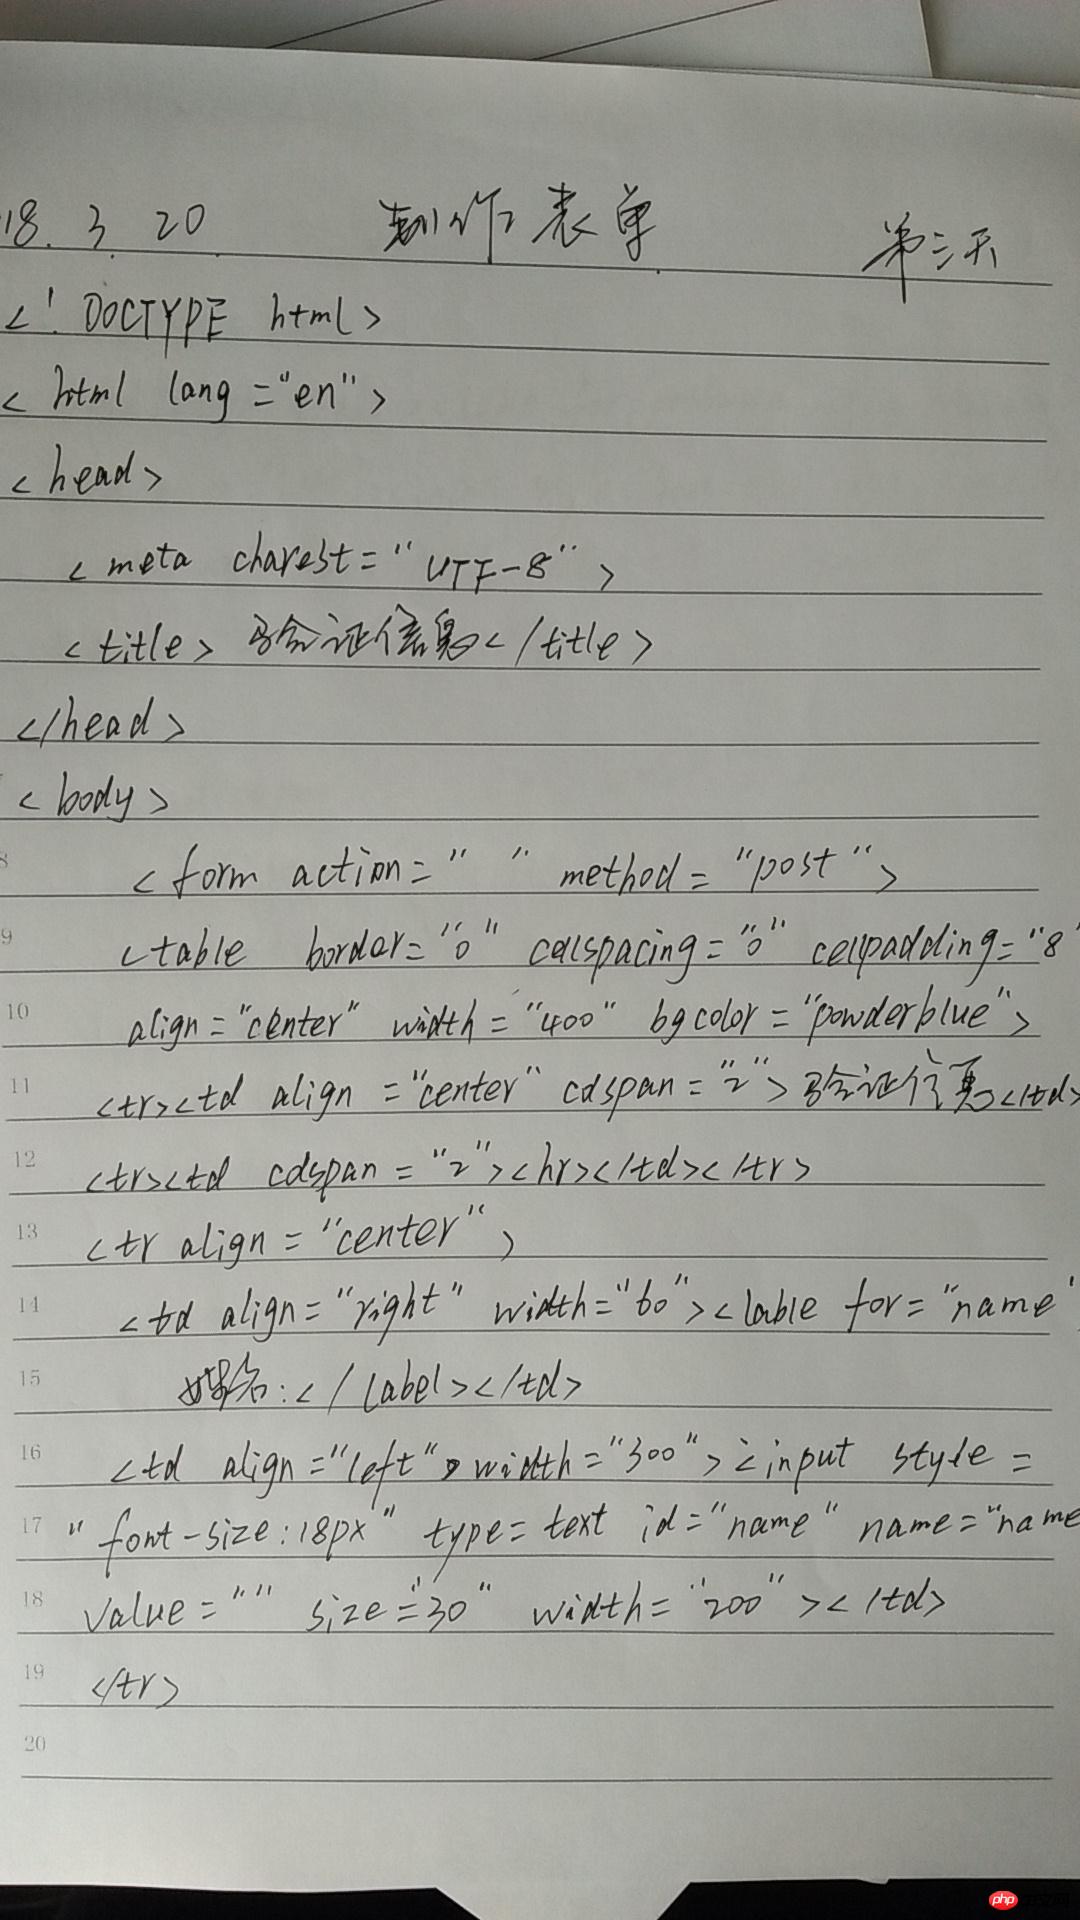 18. 3. 20 制作表单 第三天
<! DOCTYPE html>
<html lang="en">
<head>
<meta charest="UTF-8">
<title>验证信息</title>
</head>
<body>
8 <form action=" " method="post">
9 <table border="0" cellspacing="0" cellpadding="8"
10 align="center" width="400" bgcolor="powderblue">
11 <tr><td align="center" colspan="2">验证信息</td>
12 <tr><td colspan="2"><hr></td></tr>
13 <tr align="center">
14 <td align="right" width="60"><lable for="name"
15 姓名:</label></td>
16 <td align="left" width="300"><input style=
17 "font-size:18px" type=text id="name" name="name
18 value="" size="30" width="200"></td>
19 </tr>
20
php